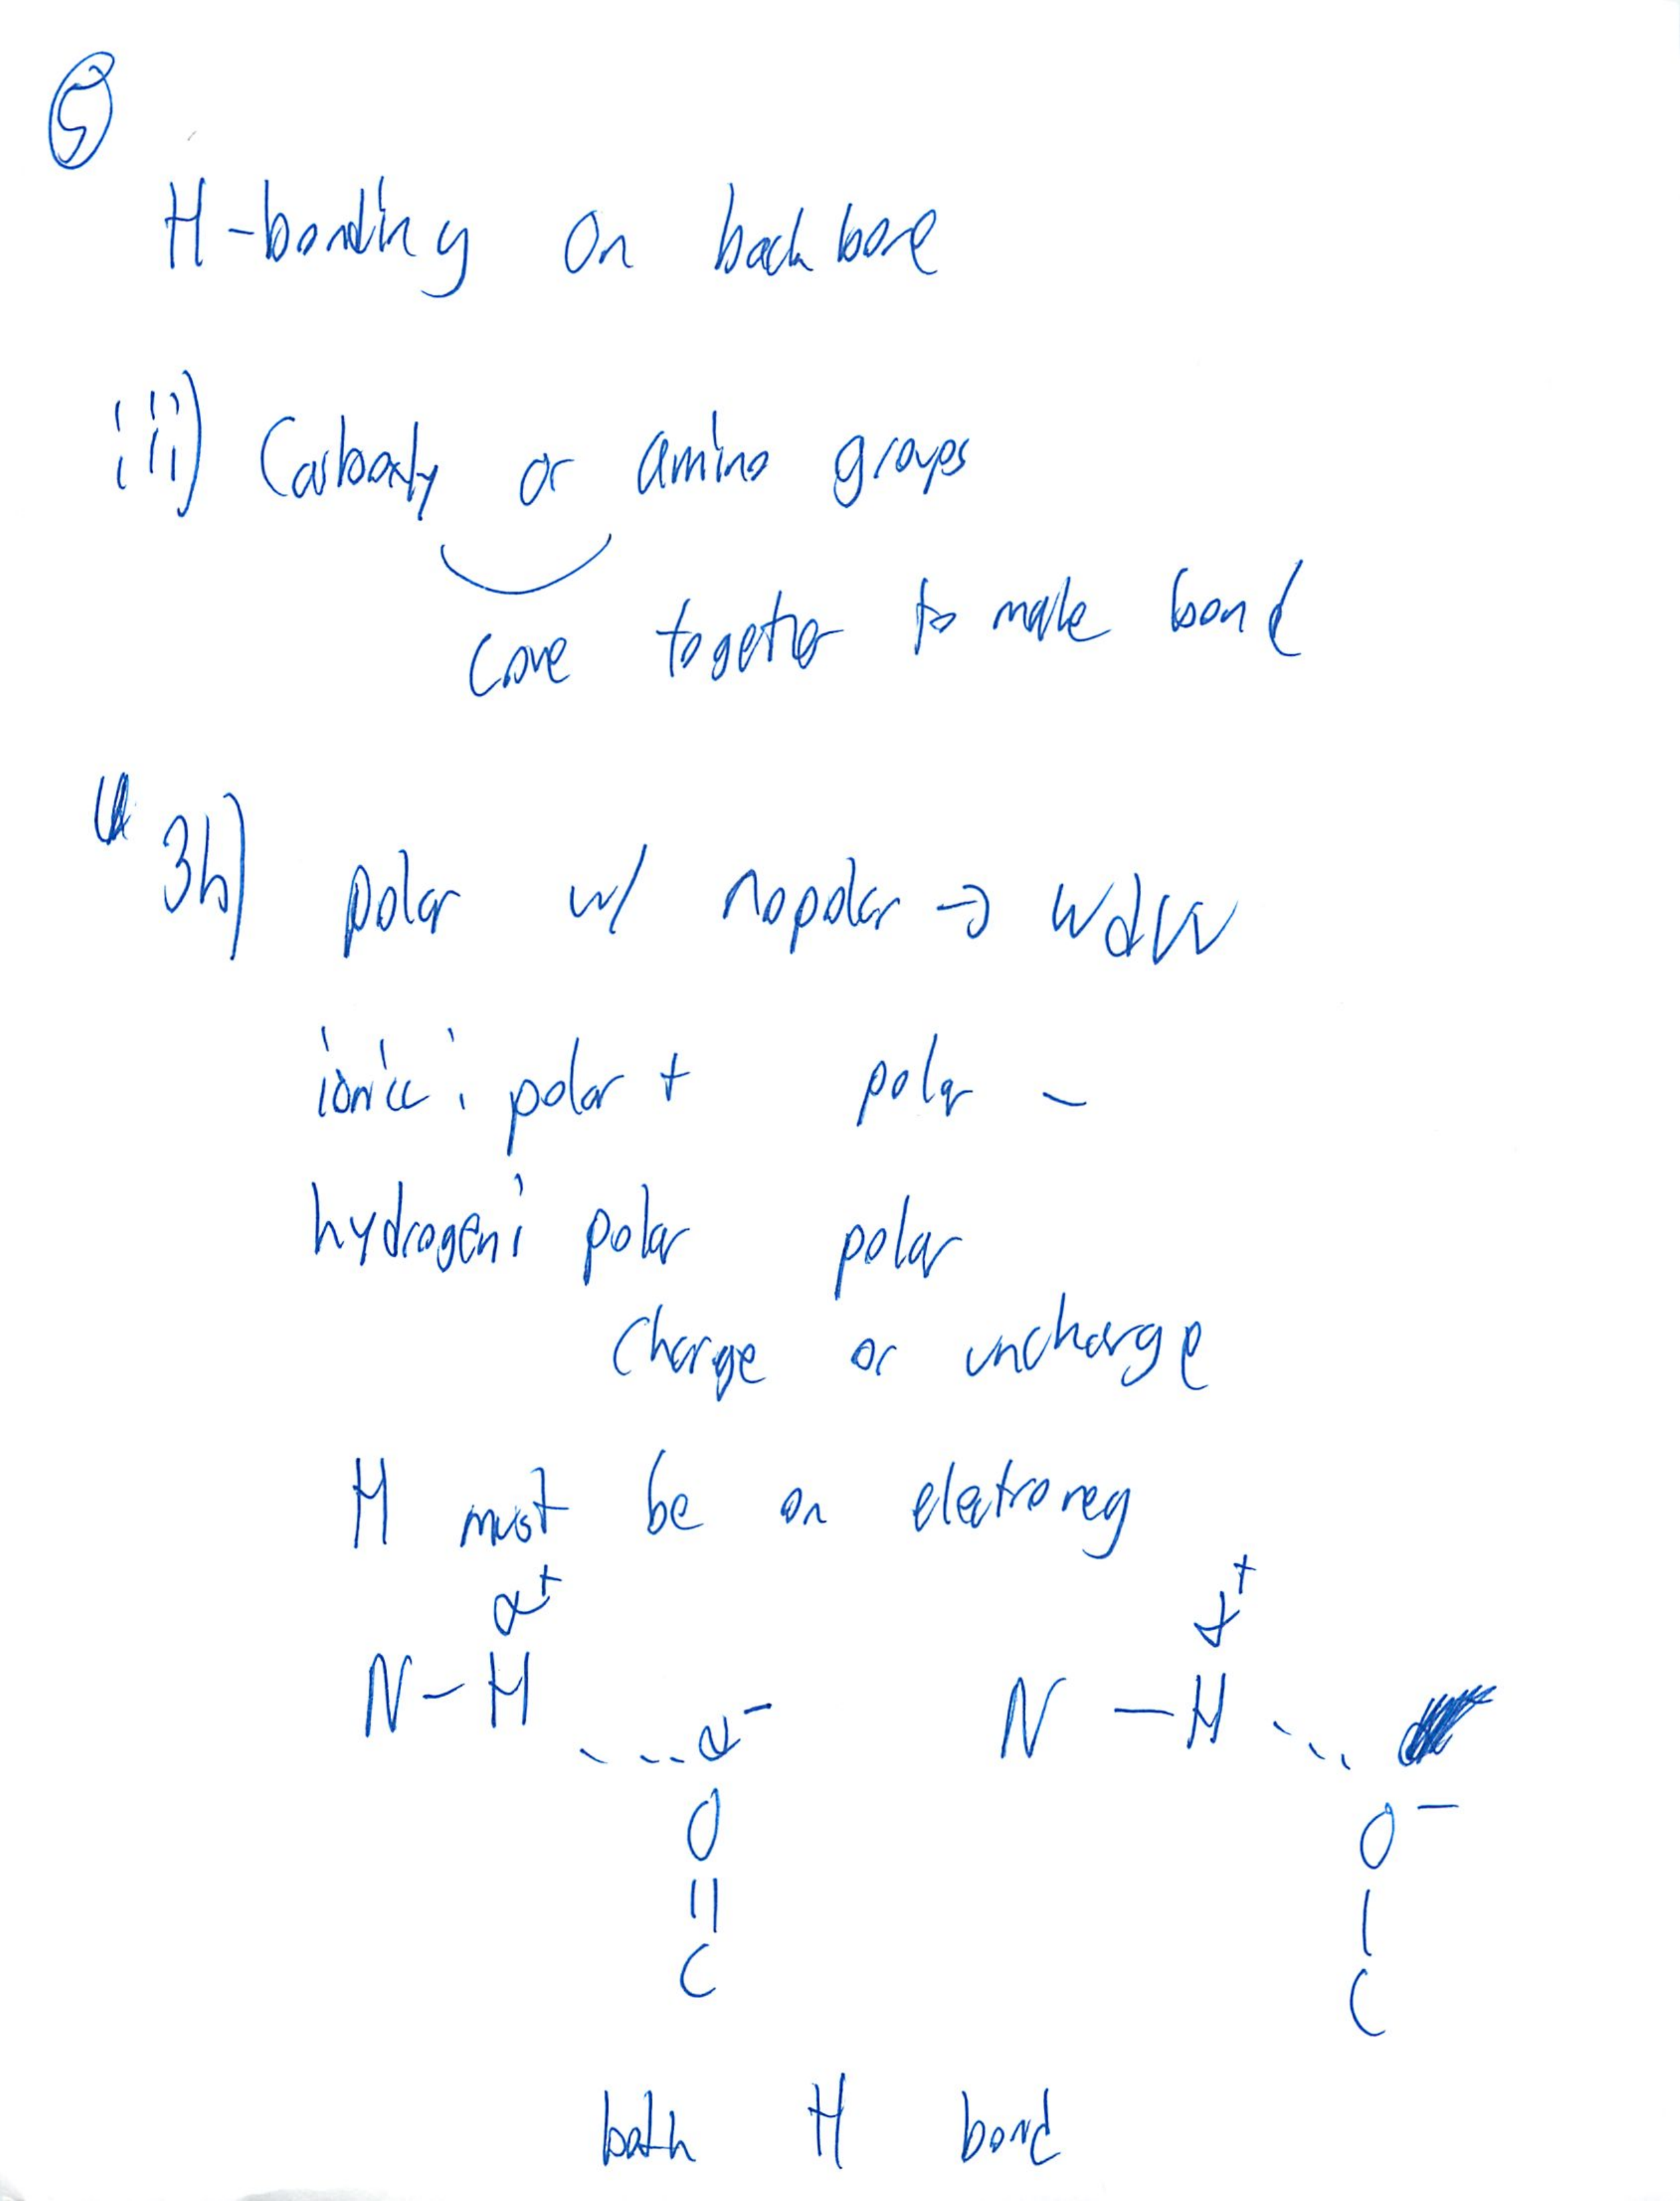 5
H-bonding on backbone
iii) Carboxly or amino groups
come together to make bond
3b) polar w/ nopolar → WdW
ionic: polar + polar -
hydrogen: polar polar
charge or uncharge
H must be on electroneg
N-H
N-H
O
O-
C
C
both H bond